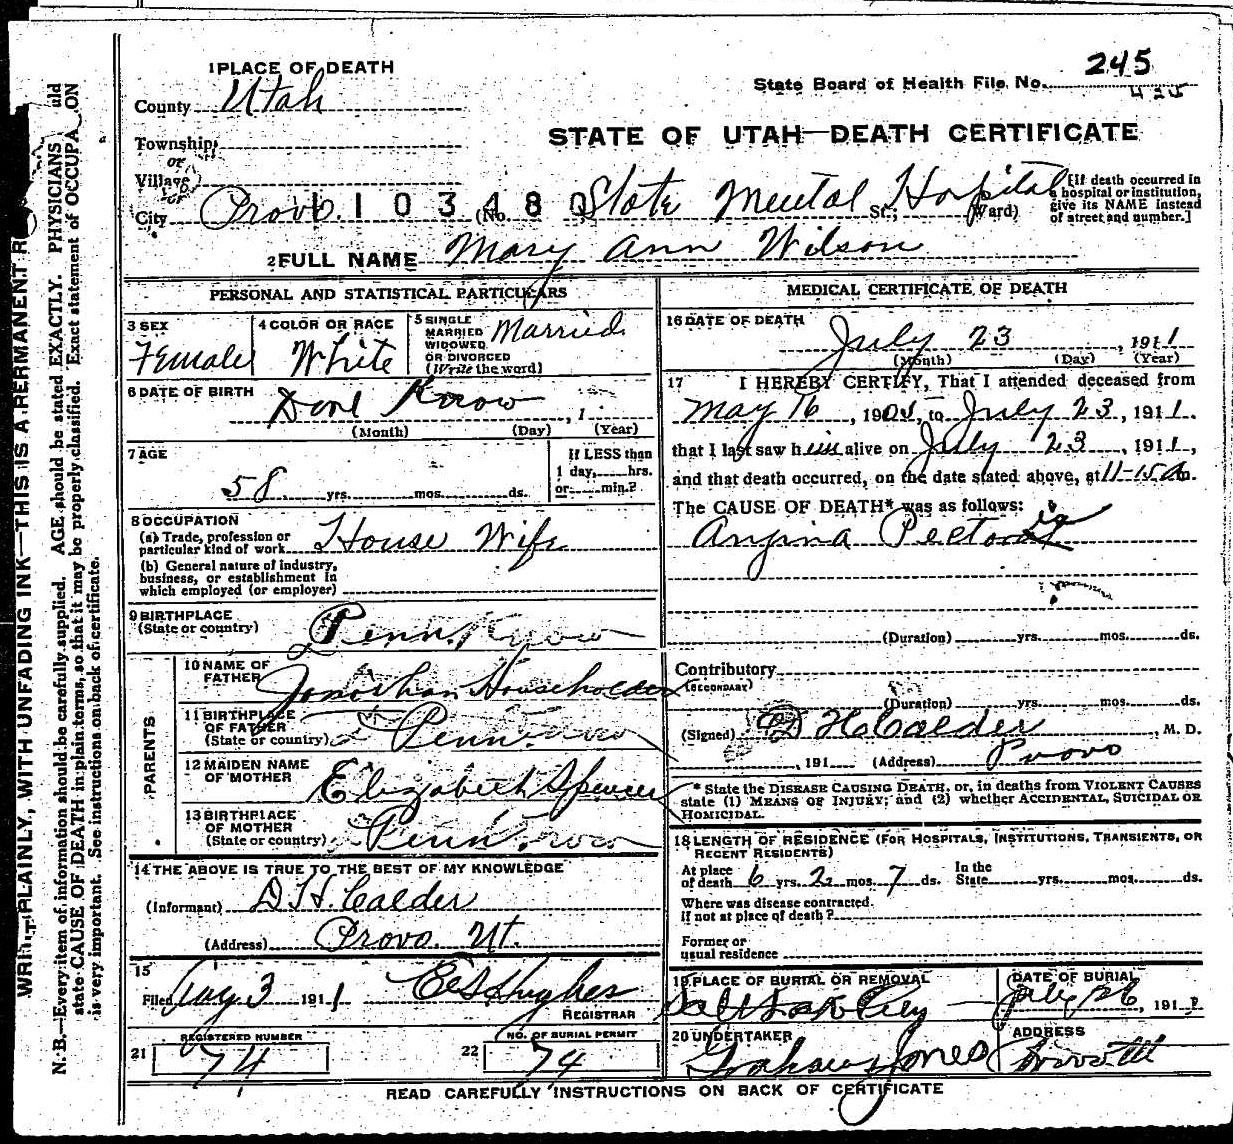 1 PLACE OF DEATH
County Utah
State Board of Health File No. 245
425
STATE OF UTAH—DEATH CERTIFICATE
Township
or
Village
or
City Provo. 1103480 (No. State Mental Hospital St.; Ward)
[If death occurred in
a hospital or institution,
give its NAME instead
of street and number.]
2 FULL NAME Mary Ann Wilson
PERSONAL AND STATISTICAL PARTICULARS
3 SEX
Female
4 COLOR OR RACE
White
5 SINGLE
MARRIED
WIDOWED
OR DIVORCED
(Write the word)
Married
6 DATE OF BIRTH Dont Know, 1
(Month) (Day) (Year)
7 AGE
58 yrs. mos. ds.
If LESS than
1 day, hrs.
or min.?
8 OCCUPATION
(a) Trade, profession or
particular kind of work House Wife
(b) General nature of industry,
business, or establishment in
which employed (or employer)
9 BIRTHPLACE
(State or country) Penn. Know
PARENTS
10 NAME OF
FATHER Jonathan Householder
11 BIRTHPLACE
OF FATHER
(State or country) Penn.
12 MAIDEN NAME
OF MOTHER Elizabeth Spencer
13 BIRTHPLACE
OF MOTHER
(State or country) Penn.
14 THE ABOVE IS TRUE TO THE BEST OF MY KNOWLEDGE
(Informant) D H. Calder
(Address) Provo. Ut.
15
Filed Aug 3 1911 Hughes
REGISTRAR
REGISTERED NUMBER
21 74
NO. OF BURIAL PERMIT
22 74
MEDICAL CERTIFICATE OF DEATH
16 DATE OF DEATH
July 23, 1911
(Month) (Day) (Year)
17 I HEREBY CERTIFY, That I attended deceased from
May 16, 1905, to July 23, 1911.
that I last saw him alive on July 23, 1911,
and that death occurred, on the date stated above, at 11-15 a m.
The CAUSE OF DEATH* was as follows:
Angina Pectoris
(Duration) yrs. mos. ds.
Contributory
(SECONDARY)
(Duration) yrs. mos. ds.
(Signed) D H Calder, M. D.
, 191 (Address) Provo
* State the DISEASE CAUSING DEATH, or, in deaths from VIOLENT CAUSES
state (1) MEANS OF INJURY; and (2) whether ACCIDENTAL, SUICIDAL OR
HOMICIDAL.
18 LENGTH OF RESIDENCE (FOR HOSPITALS, INSTITUTIONS, TRANSIENTS, OR
RECENT RESIDENTS)
At place
of death 6 yrs. 2 mos. 7 ds.
In the
State yrs. mos. ds.
Where was disease contracted.
if not at place of death?
Former or
usual residence
19 PLACE OF BURIAL OR REMOVAL
Salt Lake City
DATE OF BURIAL
July 26, 191
20 UNDERTAKER
Graham Jones
ADDRESS
READ CAREFULLY INSTRUCTIONS ON BACK OF CERTIFICATE
PLAINLY, WITH UNFADING INK—THIS IS A PERMANENT R
N. B.—Every item of information should be carefully supplied. AGE should be stated EXACTLY. PHYSICIANS
state CAUSE OF DEATH in plain terms, so that it may be properly classified. Exact statement of OCCUPA ON
is very important. See instructions on back of certificate.